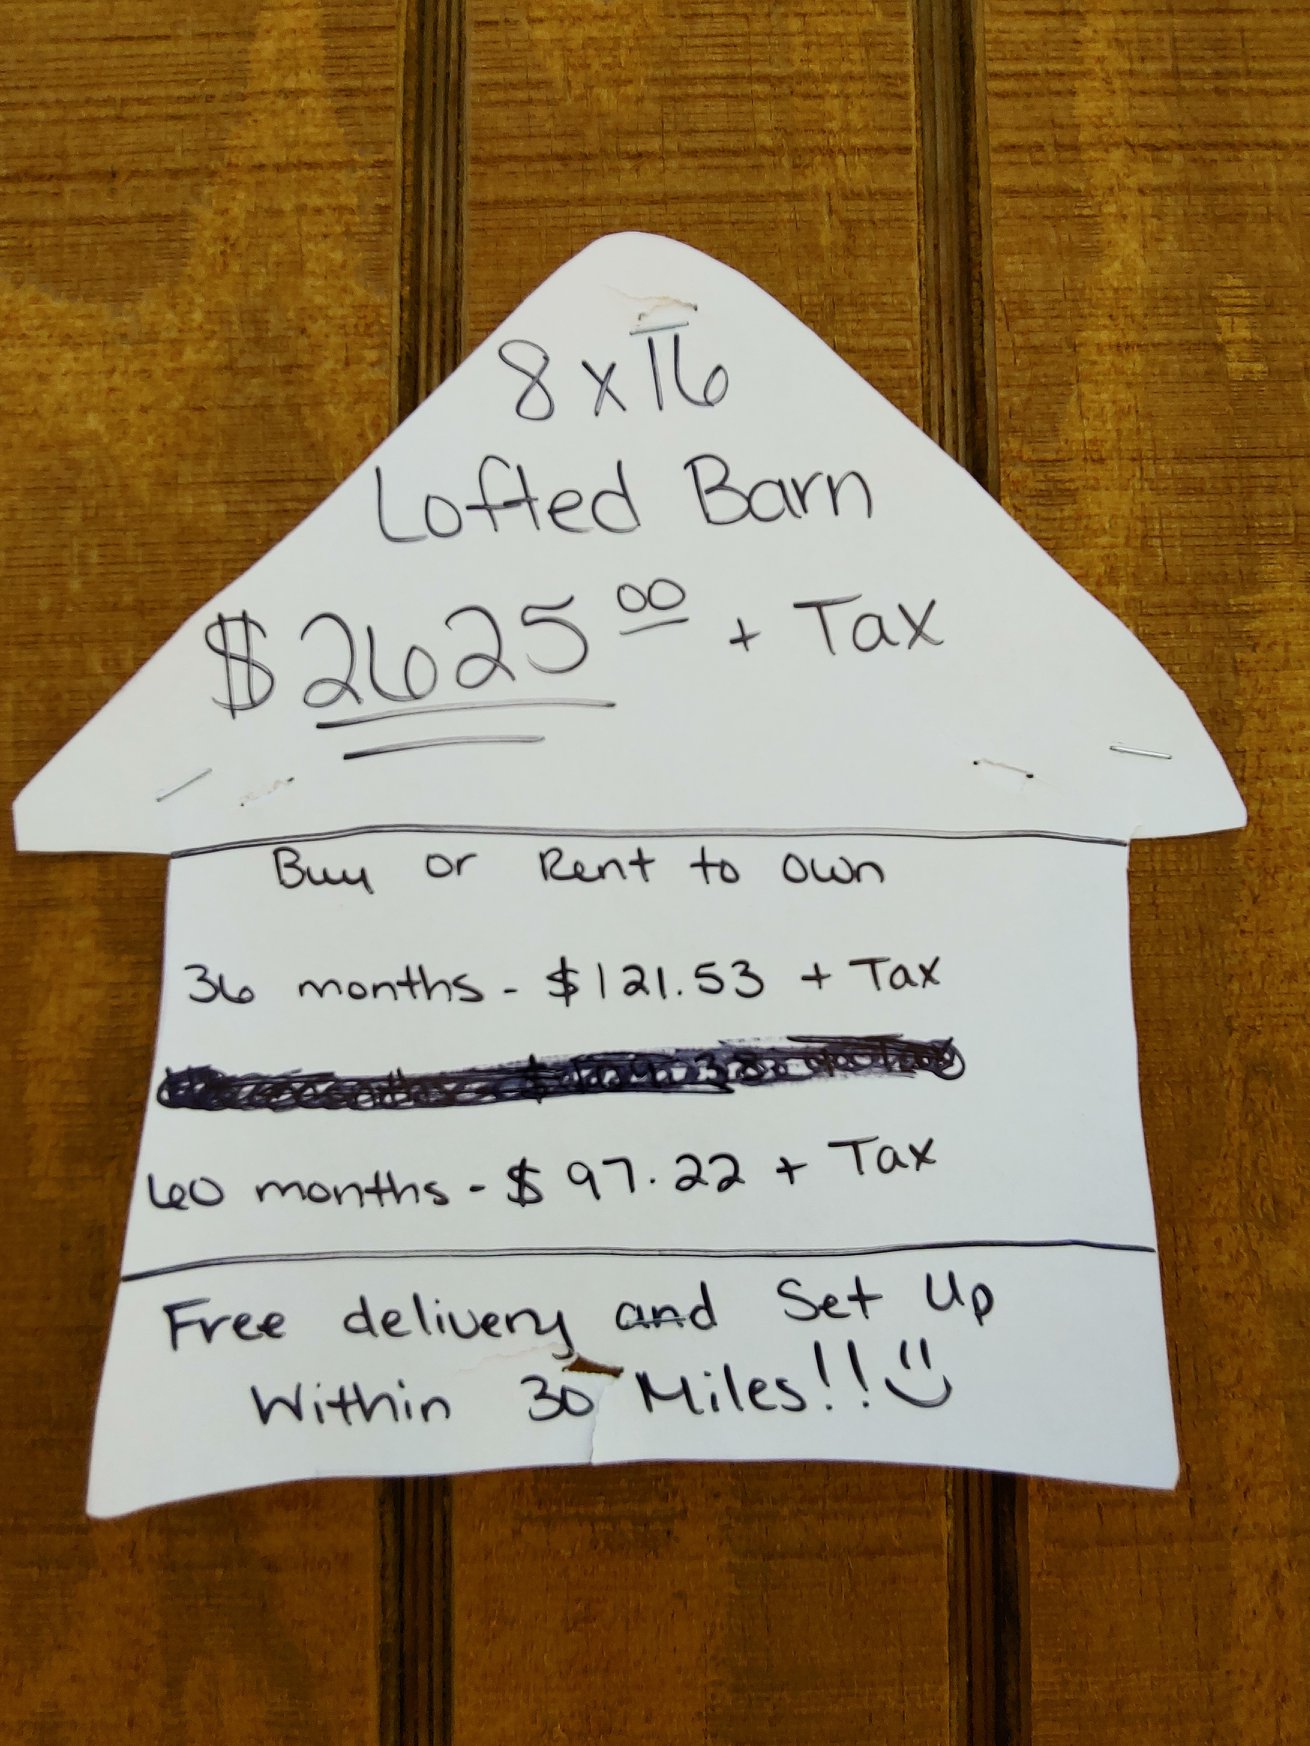 8 x 16
Lofted Barn
$2625 00 + Tax
Buy or Rent to Own
36 months - $121.53 + Tax
60 months - $97.22 + Tax
Free delivery and Set Up
Within 30 Miles!!